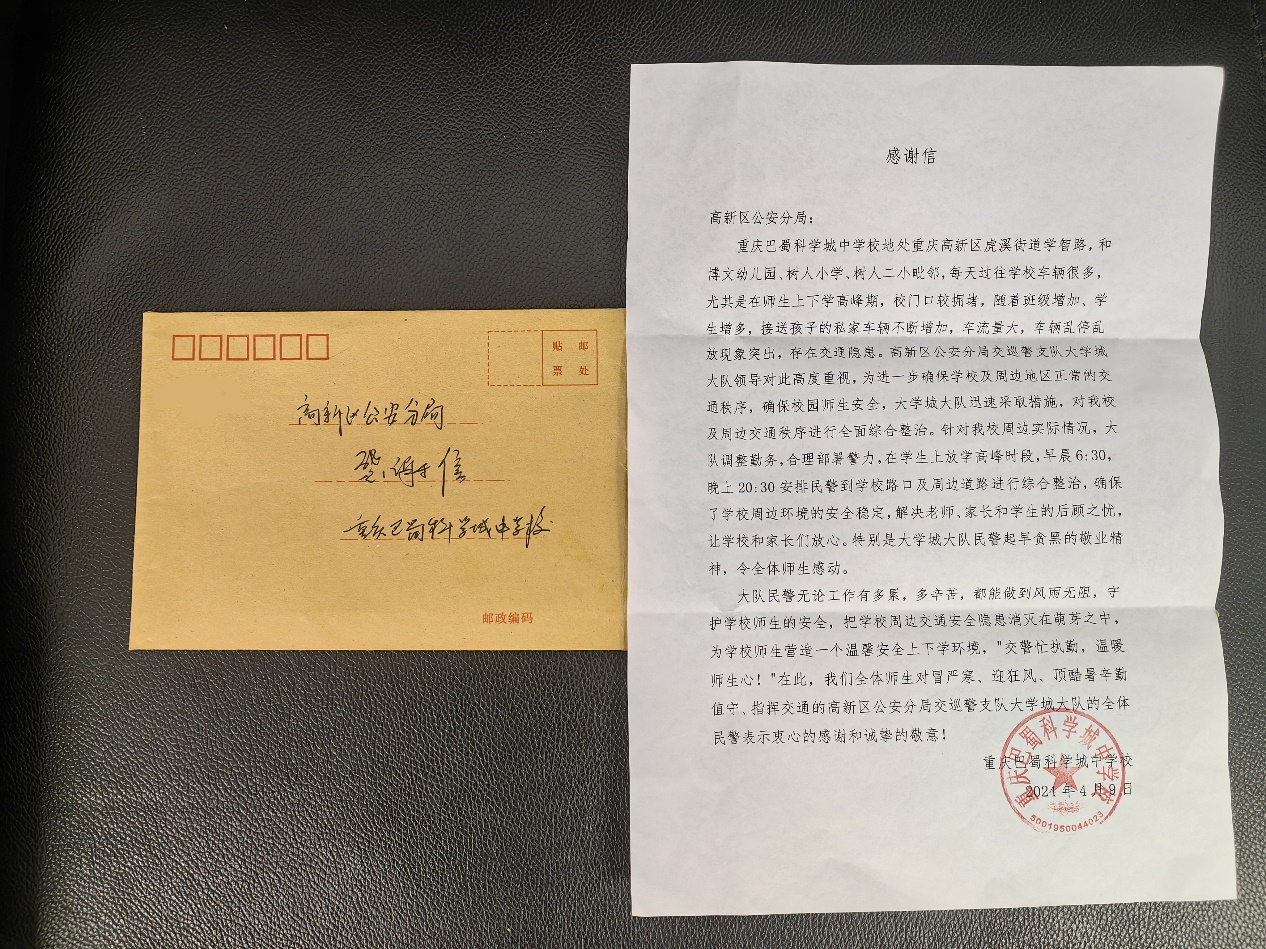 贴 邮
票 处
高新区公安分局
感谢信
重庆巴蜀科学城中学校
邮政编码
感谢信
高新区公安分局：
重庆巴蜀科学城中学校地处重庆高新区虎溪街道学智路，和
博文幼儿园、树人小学、树人二小毗邻，每天过往学校车辆很多，
尤其是在师生上下学高峰期，校门口较拥堵，随着班级增加、学
生增多，接送孩子的私家车辆不断增加，车流量大，车辆乱停乱
放现象突出，存在交通隐患。高新区公安分局交巡警支队大学城
大队领导对此高度重视，为进一步确保学校及周边地区正常的交
通秩序，确保校园师生安全，大学城大队迅速采取措施，对我校
及周边交通秩序进行全面综合整治。针对我校周边实际情况，大
队调整勤务，合理部署警力，在学生上放学高峰时段，早晨 6:30，
晚上 20:30 安排民警到学校路口及周边道路进行综合整治，确保
了学校周边环境的安全稳定，解决老师、家长和学生的后顾之忧，
让学校和家长们放心。特别是大学城大队民警起早贪黑的敬业精
神，令全体师生感动。
大队民警无论工作有多累，多辛苦，都能做到风雨无阻，守
护学校师生的安全，把学校周边交通安全隐患消灭在萌芽之中，
为学校师生营造一个温馨安全上下学环境，"交警忙执勤，温暖
师生心！"在此，我们全体师生对冒严寒、迎狂风、顶酷暑辛勤
值守、指挥交通的高新区公安分局交巡警支队大学城大队的全体
民警表示衷心的感谢和诚挚的敬意！
重庆巴蜀科学城中学校
2024 年 4 月 9 日
重庆巴蜀科学城中学校
5001950044023